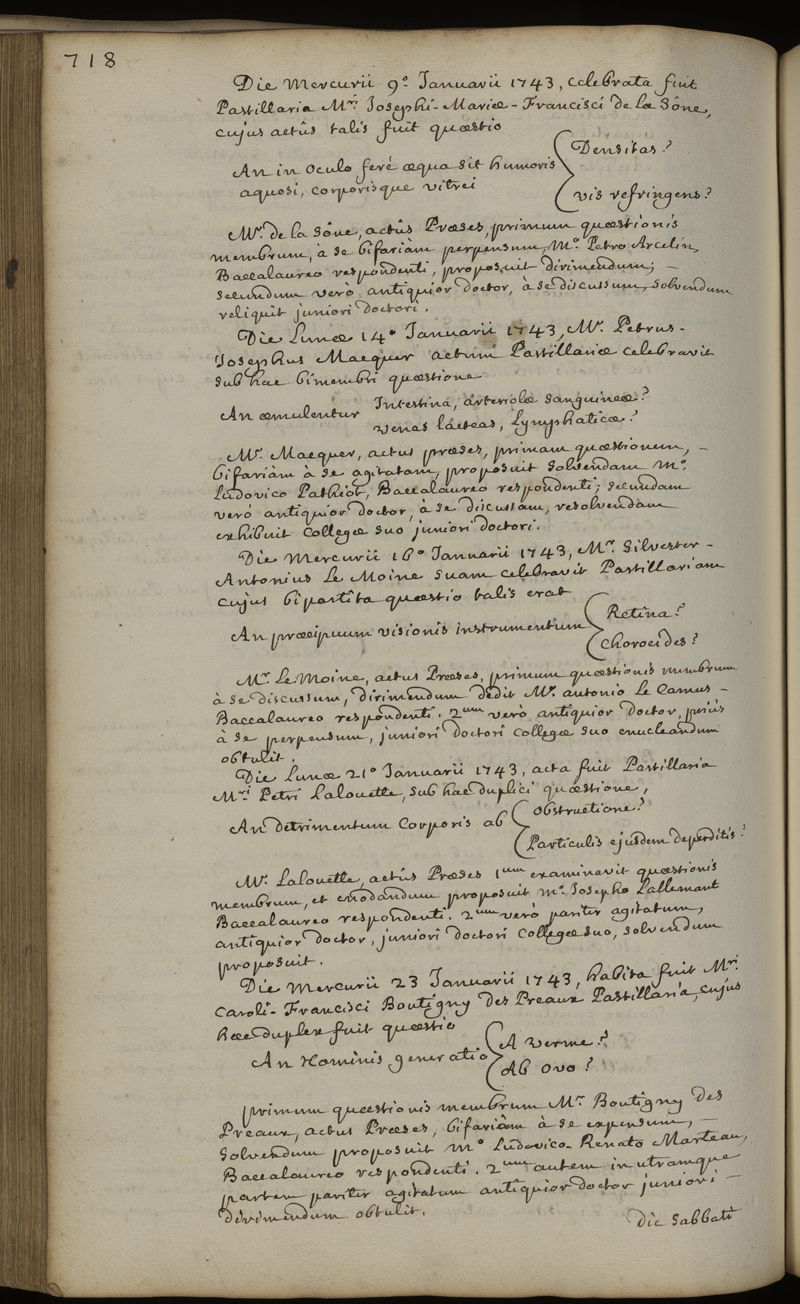 718
Die Mercurii 9.° Januarii 1743, celebrata fuit
Pastillaria M.ri Josephi-Mariæ-Francisci de la Sône,
cujus actûs talis fuit quæstio
An in oculo ferè æqua sit humoris
aquosi, corporisque vitrei
Densitas?
vis refringens?
M.r de la Sône, actûs Præses, primum quæstionis
membrum, à se bifariàm perpensum, M.° Petro Arcelin,
Baccalaureo respondenti, proposuit dirimendum; –
secundum verò antiquior doctor, à se discussum, solvendum
reliquit juniori doctori.
Die Lunæ 14.° Januarii 1743, M.r Petrus-
Josephus Macquer actum Pastillariæ celebravit
sub hac bimembri quæstione
An æmulentur
Intestina, arteriolæ sanguineæ?
venas lacteas, Lymphaticæ?
M.r Macquer, actus præses, primam quæstionem, –
bifariàm à se agitatam, proposuit solvendam M.°
Ludovico Pathiot, Baccalaureo respondenti; secundam
verò antiquior doctor, à se discussam, resolvendam
exhibuit collegæ suo juniori doctori.
Die Mercurii 16.° Januarii 1743, M.r Silvester-
Antonius Le Moine suam celebravit Pastillariam
cujus bipartita quæstio talis erat
An præcipuum visionis instrumentum
Retina?
Choroeides?
M.r Le Moine, actus Præses, primum quæstionis membrum
à se discussum, dirimendum dedit M.r antonio Le Camus –
Baccalaureo respondenti. 2.um verò antiquior doctor, priùs
à se perpensum, juniori doctori collegæ suo enucleandum
obtulit.
Die Lunæ 21.° Januarii 1743, acta fuit Pastillaria
M.ri Petri Lalouette, sub hac duplici quæstione,
An detrimentum corporis ab
obstructione?
Particulis ejusdem deperditis?
M.r Lalouette, actûs Præses 1.um examinavit quæstionis
membrum, et enodandum proposuit M.° Josepho Lallemant
Baccalaureo respondenti. 2.um verò pariter agitatum,
antiquior doctor, juniori doctori collegæ suo, solvendum
proposuit.
Die Mercurii 23 Januarii 1743, habita fuit M.ri
Caroli-Francisci Boutigny Des Preaux Pastillaria, cujus
hæc duplex fuit quæstio
An Hominis generatio
A verme?
Ab ovo?
primum quæstionis membrum M.r Boutigny Des
Preaux, actus Præses, bifariàm à se expensum, –
solvendum proposuit M.° Ludovico-Renato Marteau,
Baccalaureo respondenti. 2.um autem in utramque
partem pariter agitatum antiquior doctor juniori –
dirimendum obtulit.
die Sabbati